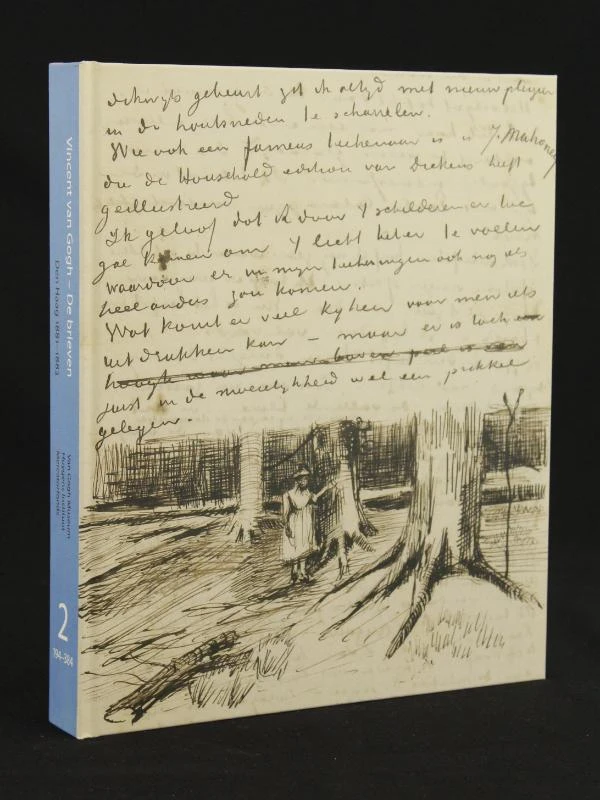 Vincent van Gogh – De brieven
Den Haag 1881-1883
Van Gogh Museum
Huygens Instituut
Mercatorfonds
2
194-384
gebeurt zit ik altyd met nieuw plezier
in de houtsneden te
Wie ook een fameus teekenaar is is J. Mahoney
die de Household edition van Dickens heeft
geillustreerd
Ik geloof dat ik door 't schilderen er toe
zal komen om 't licht beter te voelen
waardoor er in myn teekeningen ook nog iets
heel anders zou komen.
Wat komt er veel kyken voor men iets
uitdrukken kan – maar er is toch
juist in de moeielykheid wel een prikkel
gelegen.